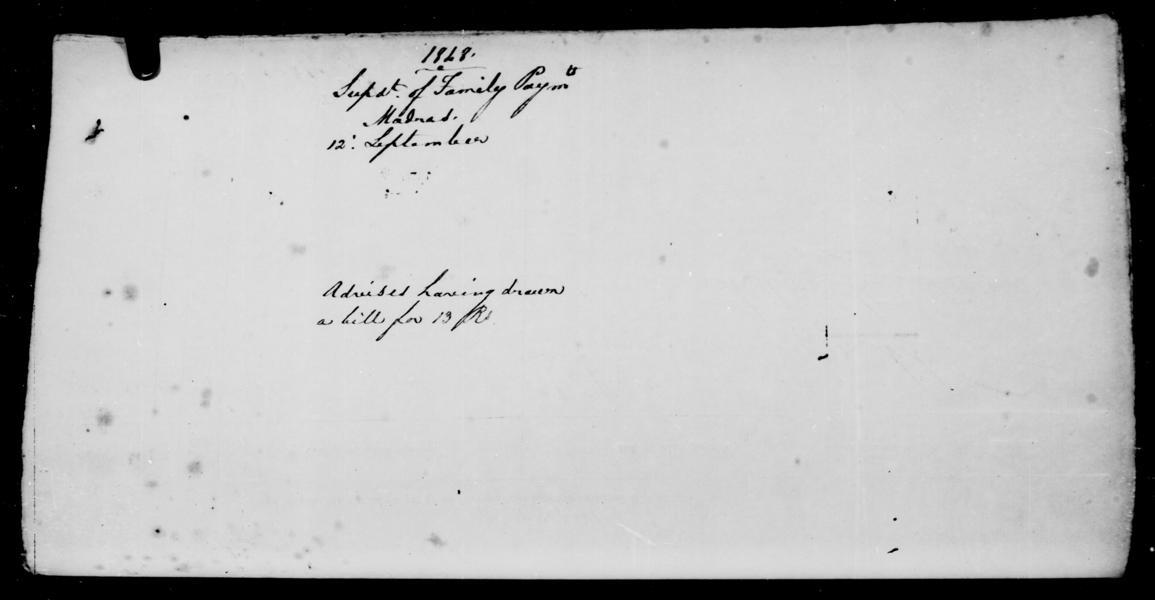 1848.
Supdt. of Family Paymts
Madras.
12: September
Advises having drawn
a bill for 13 Rs